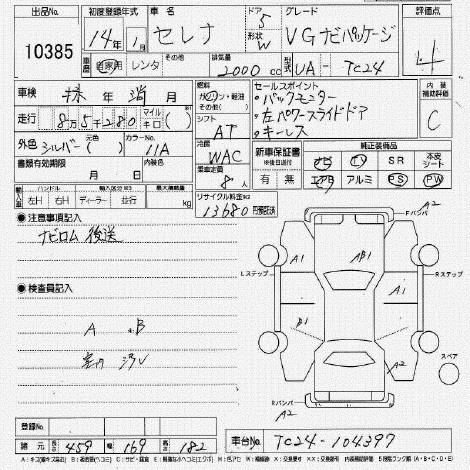 出品No. 10385
初度登録年式 14年 1月
車名 セレナ
ドア 5 形状 W
グレード VGナビパッケージ
評価点 4
車歴 自家用 レンタ その他
排気量 2000 cc
型式 UA-TC24
車検 抹 年 消 月
走行 8万5千280 マイル キロ ( )
外色 シルバー 元色 ( ) カラーNo. 11A
書類有効期限 月 日 内装色
燃料 ガソリン・軽油 その他( )
シフト AT
冷房 WAC
乗車定員 8人
リサイクル料金 13680 円預託済
セールスポイント
・バックモニター
・左パワースライドドア
・キーレス
内装補助評価 C
新車保証書 有 無
純正装備品
ナビ TV SR 本皮シート
エアB アルミ PS PW
輸入車 ハンドル 左H 右H 輸入区分 ディーラー 並行 最大積載量 kg
注意事項記入
ナビロム 後送
検査員記入
A . B
Fバンパ A2
Lステップ Rステップ
A1 AB1 A1
B1 A2
Rバンパ A2
スペア
登録No.
諸元 長さ 459 幅 169 高さ 182
車台No. TC24-104397